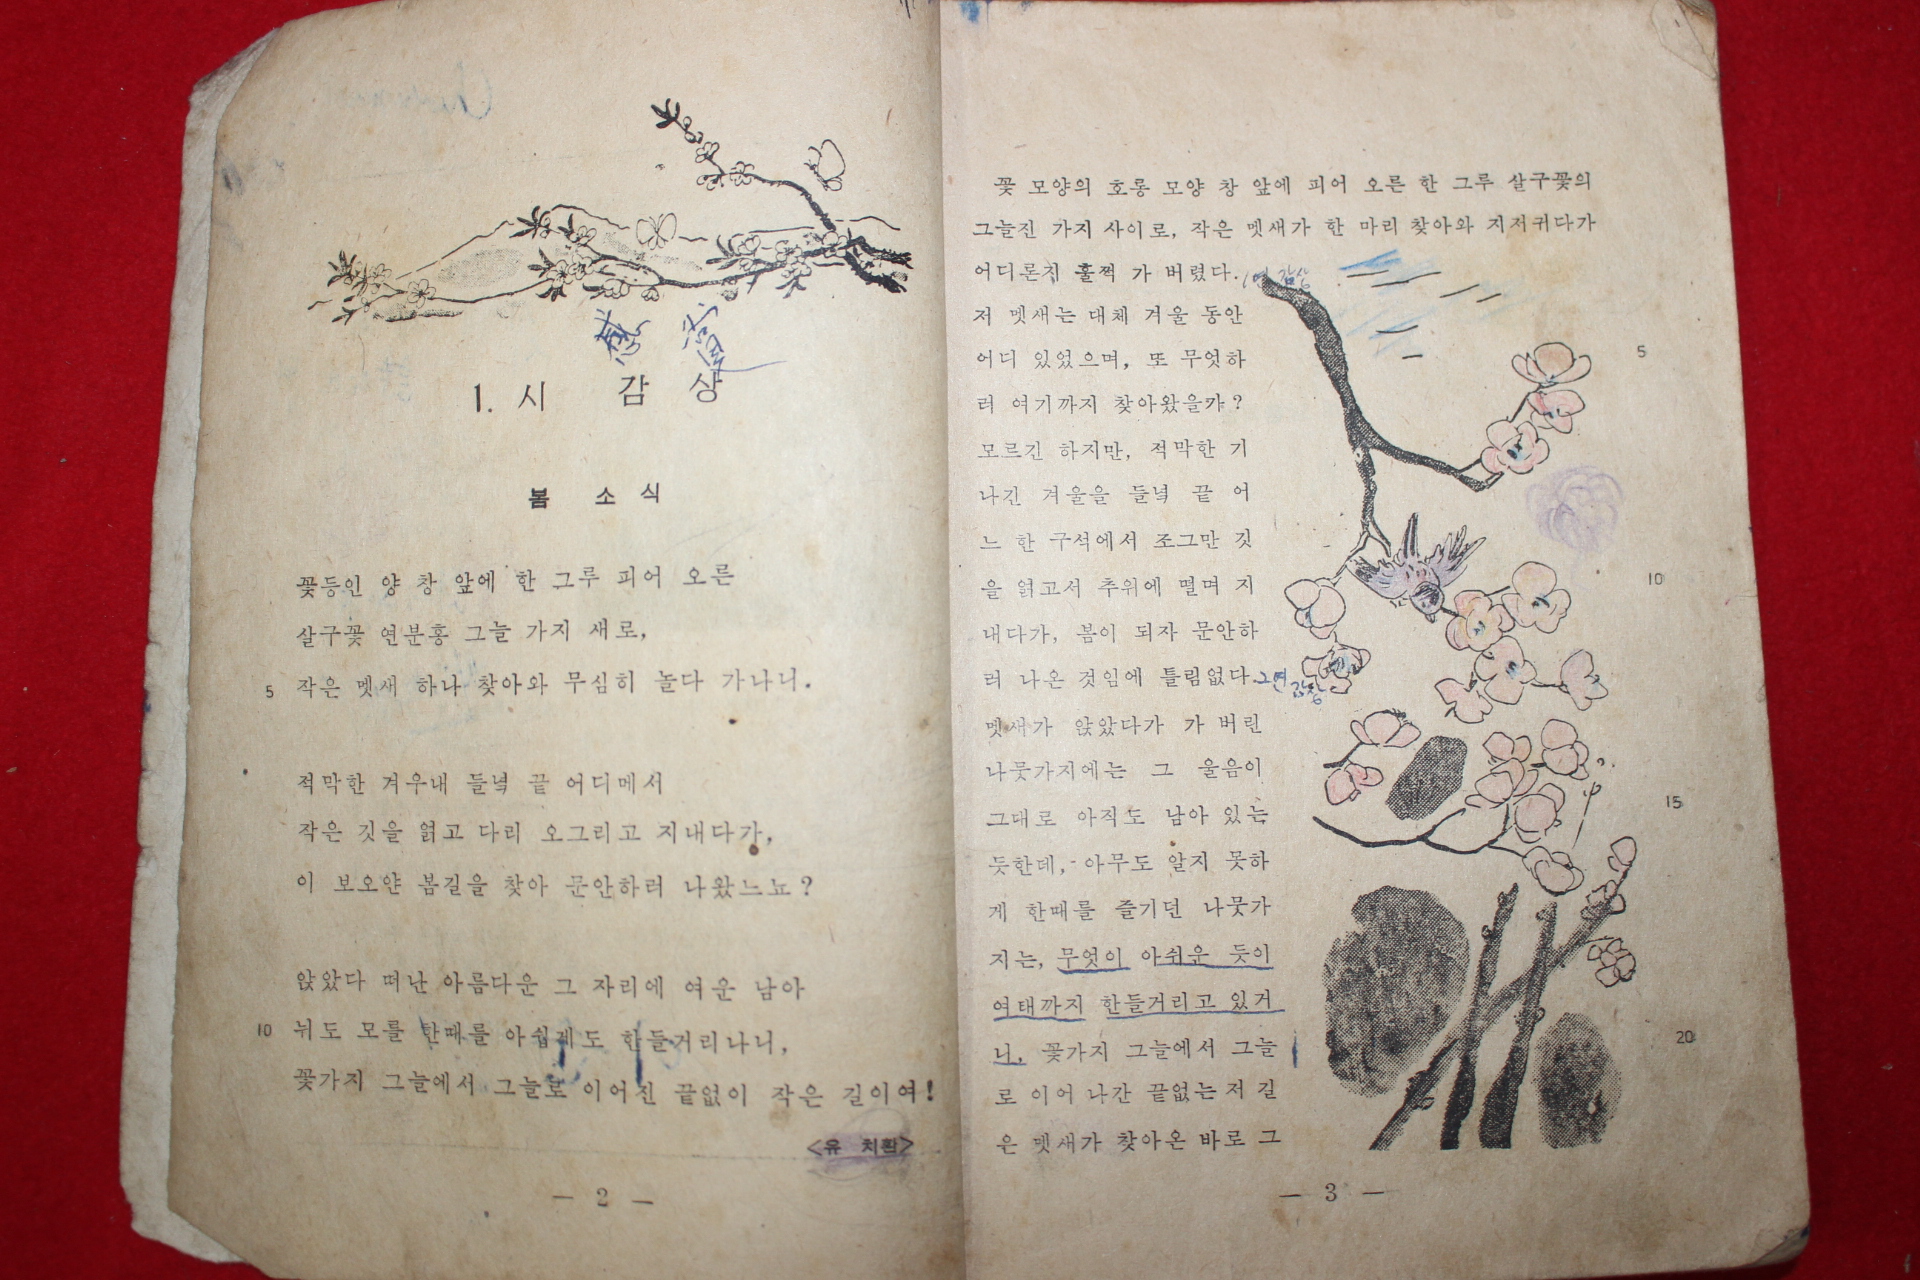 感 賞
1. 시 감 상
봄 소 식
꽃등인 양 창 앞에 한 그루 피어 오른
살구꽃 연분홍 그늘 가지 새로,
5 작은 멧새 하나 찾아와 무심히 놀다 가나니.
적막한 겨우내 들녘 끝 어디메서
작은 깃을 얽고 다리 오그리고 지내다가,
이 보오얀 봄길을 찾아 문안하러 나왔느뇨?
앉았다 떠난 아름다운 그 자리에 여운 남아
10 뉘도 모를 한때를 아쉽게도 한들거리나니,
꽃가지 그늘에서 그늘로 이어진 끝없이 작은 길이여!
<유 치환>
— 2 —
꽃 모양의 호롱 모양 창 앞에 피어 오른 한 그루 살구꽃의
그늘진 가지 사이로, 작은 멧새가 한 마리 찾아와 지저귀다가
어디론지 훌쩍 가 버렸다. 1연 감상
저 멧새는 대체 겨울 동안
어디 있었으며, 또 무엇하 5
러 여기까지 찾아왔을까?
모르긴 하지만, 적막한 기
나긴 겨울을 들녘 끝 어
느 한 구석에서 조그만 깃
을 얽고서 추위에 떨며 지 10
내다가, 봄이 되자 문안하
러 나온 것임에 틀림없다. 2연 감상
멧새가 앉았다가 가 버린
나뭇가지에는 그 울음이
그대로 아직도 남아 있는 15
듯한데, 아무도 알지 못하
게 한때를 즐기던 나뭇가
지는, 무엇이 아쉬운 듯이
여태까지 한들거리고 있거
니, 꽃가지 그늘에서 그늘 20
로 이어 나간 끝없는 저 길
은 멧새가 찾아온 바로 그
— 3 —